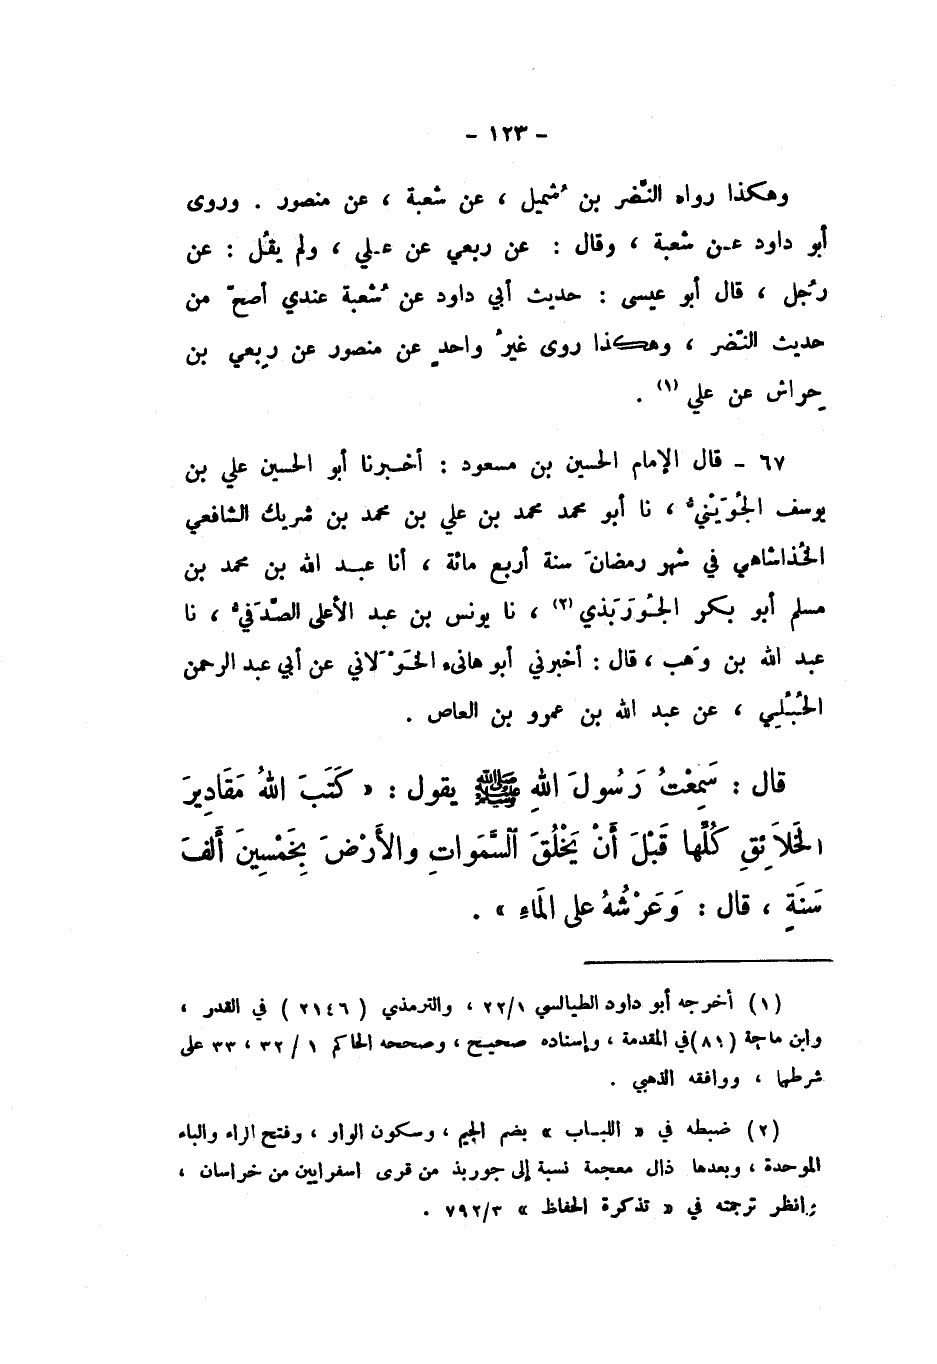 - ١٢٣ -
وهكذا رواه النَّضر بن ُشميل ، عن شعبة ، عن منصور . وروى
أبو داود عـن شعبة ، وقال : عن ربعي عن عـلي ، ولم يقُل : عن
رجُل ، قال أبو عيسى : حديث أبي داود عن ُشعبة عندي أصحّ من
حديث النَّضر ، وهكذا روى غيرُ واحدٍ عن منصور عن رِبعي بن
حِراش عن علي (١) .
٦٧ - قال الإمام الحسين بن مسعود : أخـبرنا أبو الحسين علي بن
يوسف الجُوَيْنيُّ ، نا أبو محمد محمد بن علي بن محمد بن شريك الشافعي
الخُذاشاهي في شهر رمضانَ سنة أربع مائة ، أنا عبـد الله بن محمد بن
مسلم أبو بكر الجُورَبَذي (٢) ، نا يونس بن عبد الأعلى الصَّدَفيُّ ، نا
عبد الله بن وَهب ، قال : أخبرني أبو هانىء الخَوْلَاني عن أبي عبد الرحمن
الحُبُلِي ، عن عبد الله بن عمرو بن العاص .
قال : سَمِعْتُ رَسُولَ اللهِ ﷺ يقول : « كَتَبَ اللهُ مَقَادِيرَ
الخَلَائِقِ كُلَّها قَبْلَ أَنْ يَخْلُقَ ٱلسَّمَواتِ والأَرْضَ بِخَمْسِينَ أَلفَ
سَنَةٍ ، قال : وَعَرْشُهُ على المَاءِ » .
(١) أخرجه أبو داود الطيالسي ٢٢/١ ، والترمذي ( ٢١٤٦ ) في القدر ،
وابن ماجة (٨١)في المقدمة ، وإسناده صحيـح ، وصححه الحاكم ١ / ٣٢ ، ٣٣ على
شرطهما ، ووافقه الذهبي .
(٢) ضبطه في « اللبـاب » بضم الجيم ، وسكون الواو ، وفتح الراء والباء
الموحدة ، وبعدها ذال معجمة نسبة إلى جوربذ من قرى اسفرايين من خراسان ،
وانظر ترجمته في « تذكرة الحفاظ » ٧٩٢/٣ .